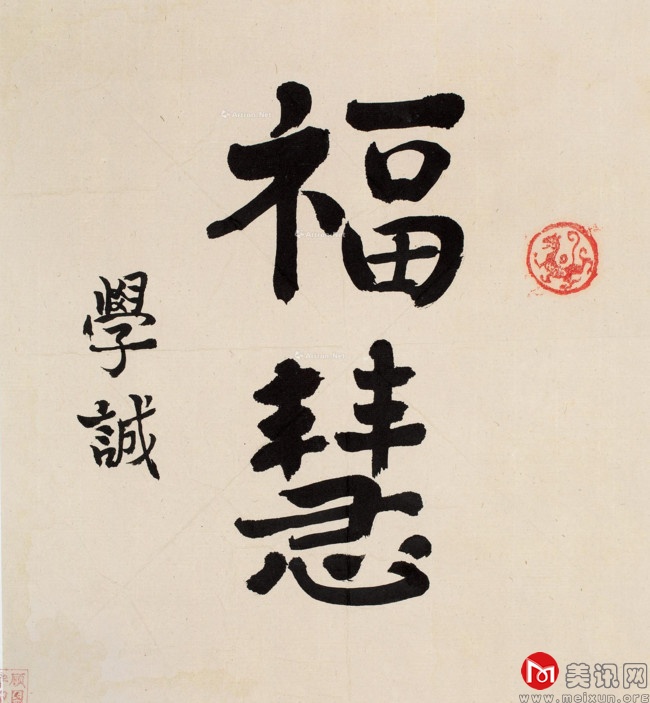 福慧
學誠
美讯网
www.meixun.org